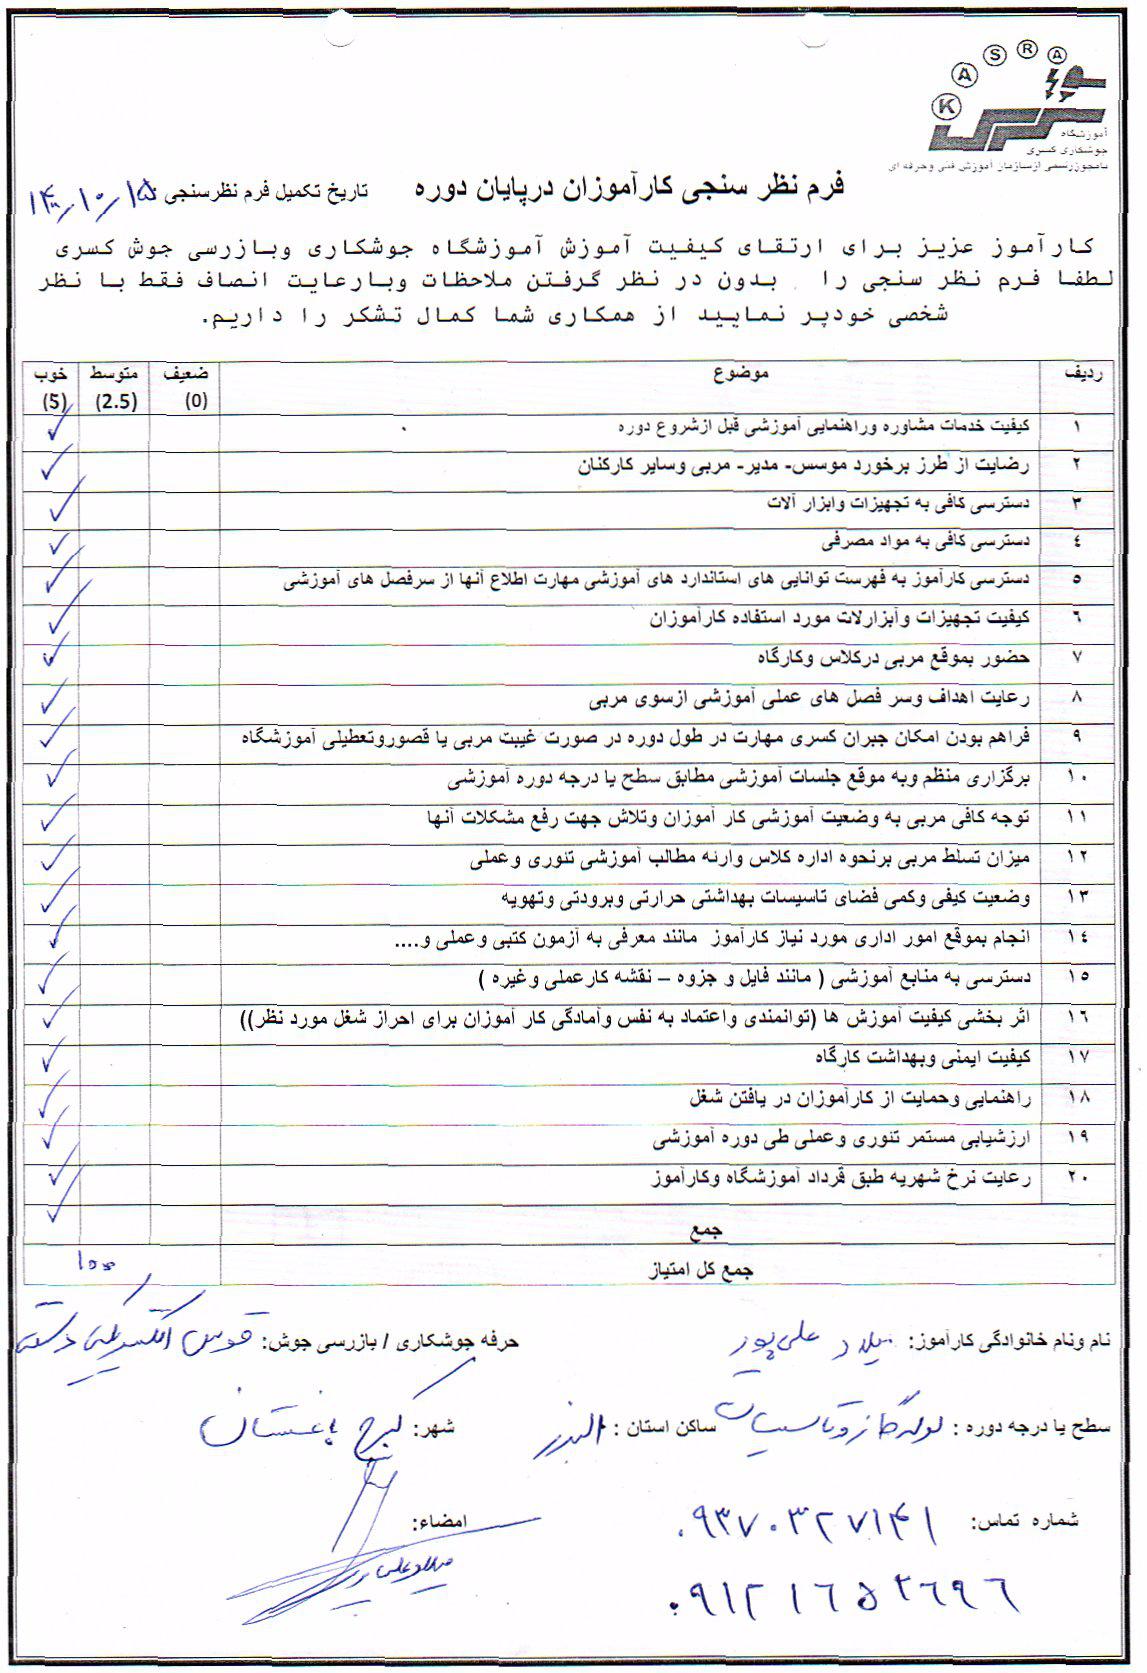 K A S R A
آموزشگاه
جوشکاری کسری
بامجوزرسمی ازسازمان آموزش فنی وحرفه ای
فرم نظر سنجی کارآموزان درپایان دوره تاریخ تکمیل فرم نظرسنجی: ۱۴۰۰/۱۰/۱۵
کارآموز عزیز برای ارتقای کیفیت آموزش آموزشگاه جوشکاری وبازرسی جوش کسری
لطفا فرم نظر سنجی را بدون در نظر گرفتن ملاحظات وبارعایت انصاف فقط با نظر
شخصی خودپر نمایید از همکاری شما کمال تشکر را داریم.
ردیف موضوع ضعیف (0) متوسط (2.5) خوب (5)
۱ کیفیت خدمات مشاوره وراهنمایی آموزشی قبل ازشروع دوره ✓
۲ رضایت از طرز برخورد موسس- مدیر- مربی وسایر کارکنان ✓
۳ دسترسی کافی به تجهیزات وابزار آلات ✓
٤ دسترسی کافی به مواد مصرفی ✓
٥ دسترسی کارآموز به فهرست توانایی های استاندارد های آموزشی مهارت اطلاع آنها از سرفصل های آموزشی ✓
٦ کیفیت تجهیزات وآبزارلات مورد استفاده کارآموزان ✓
۷ حضور بموقع مربی درکلاس وکارگاه ✓
۸ رعایت اهداف وسر فصل های عملی آموزشی ازسوی مربی ✓
۹ فراهم بودن امکان جبران کسری مهارت در طول دوره در صورت غیبت مربی یا قصوروتعطیلی آموزشگاه ✓
۱۰ برگزاری منظم وبه موقع جلسات آموزشی مطابق سطح یا درجه دوره آموزشی ✓
۱۱ توجه کافی مربی به وضعیت آموزشی کار آموزان وتلاش جهت رفع مشکلات آنها ✓
۱۲ میزان تسلط مربی برنحوه اداره کلاس وارئه مطالب آموزشی تئوری وعملی ✓
۱۳ وضعیت کیفی وکمی فضای تاسیسات بهداشتی حرارتی وبرودتی وتهویه ✓
۱٤ انجام بموقع امور اداری مورد نیاز کارآموز مانند معرفی به آزمون کتبی وعملی و.... ✓
۱٥ دسترسی به منابع آموزشی ( مانند فایل و جزوه – نقشه کارعملی وغیره ) ✓
۱٦ اثر بخشی کیفیت آموزش ها (توانمندی واعتماد به نفس وآمادگی کار آموزان برای احراز شغل مورد نظر)) ✓
۱۷ کیفیت ایمنی وبهداشت کارگاه ✓
۱۸ راهنمایی وحمایت از کارآموزان در یافتن شغل ✓
۱۹ ارزشیابی مستمر تئوری وعملی طی دوره آموزشی ✓
۲۰ رعایت نرخ شهریه طبق قرداد آموزشگاه وکارآموز ✓
جمع ✓
جمع کل امتیاز ۱۰۰
نام ونام خانوادگی کارآموز: میلاد علی‌پور حرفه جوشکاری / بازرسی جوش: قوس الکتریکی دستی
سطح یا درجه دوره : لوله گاز و تاسیسات ساکن استان : البرز شهر: کرج باغستان
شماره تماس: ۰۹۳۷۰۳۲۷۱۴۱ امضاء:
میلاد علی پور
۰۹۱۲۱۶۵۲۶۹۶